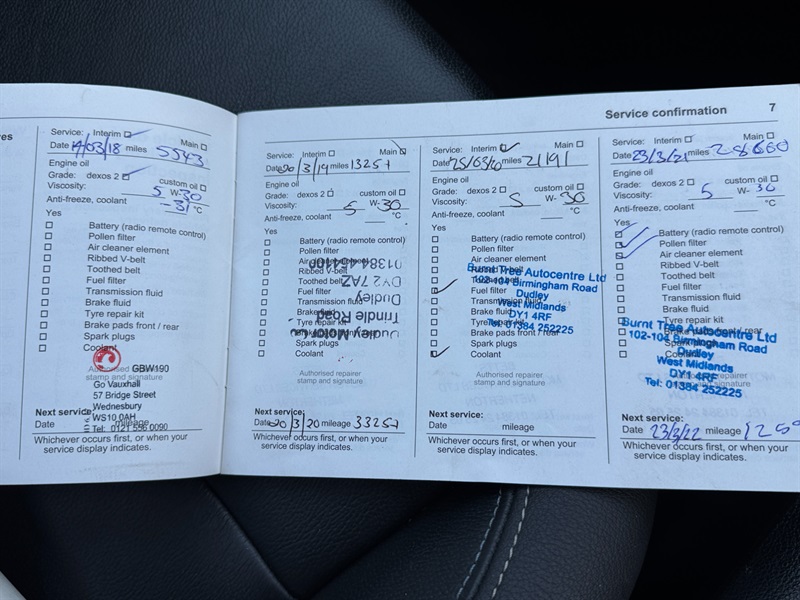 Service confirmation 7
es
Service: Interim Main
Date 14/03/18 miles 5543
Engine oil
Grade: dexos 2 custom oil
Viscosity: 5 W-30
Anti-freeze, coolant -31 °C
Yes
Battery (radio remote control)
Pollen filter
Air cleaner element
Ribbed V-belt
Toothed belt
Fuel filter
Transmission fluid
Brake fluid
Tyre repair kit
Brake pads front / rear
Spark plugs
Coolant
Authorised
stamp and signature
GBW190
Go Vauxhall
57 Bridge Street
Wednesbury
WS10 0AH
Tel: 0121 556 0090
Next service:
Date mileage
Whichever occurs first, or when your
service display indicates.
Service: Interim Main
Date 20/3/19 miles 13257
Engine oil
Grade: dexos 2 custom oil
Viscosity: 5 W-30
Anti-freeze, coolant °C
Yes
Battery (radio remote control)
Pollen filter
Air cleaner element
Ribbed V-belt
Toothed belt
Fuel filter
Transmission fluid
Brake fluid
Tyre repair kit
Brake pads front / rear
Spark plugs
Coolant
Dudley Motor
Trindle Road
Dudley
DY2 7AZ
01384 454100
Authorised repairer
stamp and signature
Next service:
Date 20/3/20 mileage 33257
Whichever occurs first, or when your
service display indicates.
Service: Interim Main
Date 25/03/20 miles 21191
Engine oil
Grade: dexos 2 custom oil
Viscosity: 5 W-30
Anti-freeze, coolant °C
Yes
Battery (radio remote control)
Pollen filter
Air cleaner element
Ribbed V-belt
Toothed belt
Fuel filter
Transmission fluid
Brake fluid
Tyre repair kit
Brake pads front / rear
Spark plugs
Coolant
Burnt Tree Autocentre Ltd
102-104 Birmingham Road
Dudley
West Midlands
DY1 4RF
Tel: 01384 252225
Authorised repairer
stamp and signature
Next service:
Date mileage
Whichever occurs first, or when your
service display indicates.
Service: Interim Main
Date 23/3/21 miles 28660
Engine oil
Grade: dexos 2 custom oil
Viscosity: 5 W-30
Anti-freeze, coolant °C
Yes
Battery (radio remote control)
Pollen filter
Air cleaner element
Ribbed V-belt
Toothed belt
Fuel filter
Transmission fluid
Brake fluid
Tyre repair kit
Brake pads front / rear
Spark plugs
Coolant
Burnt Tree Autocentre Ltd
102-104 Birmingham Road
Dudley
West Midlands
DY1 4RF
Tel: 01384 252225
Authorised repairer
stamp and signature
Next service:
Date 23/3/22 mileage
Whichever occurs first, or when your
service display indicates.